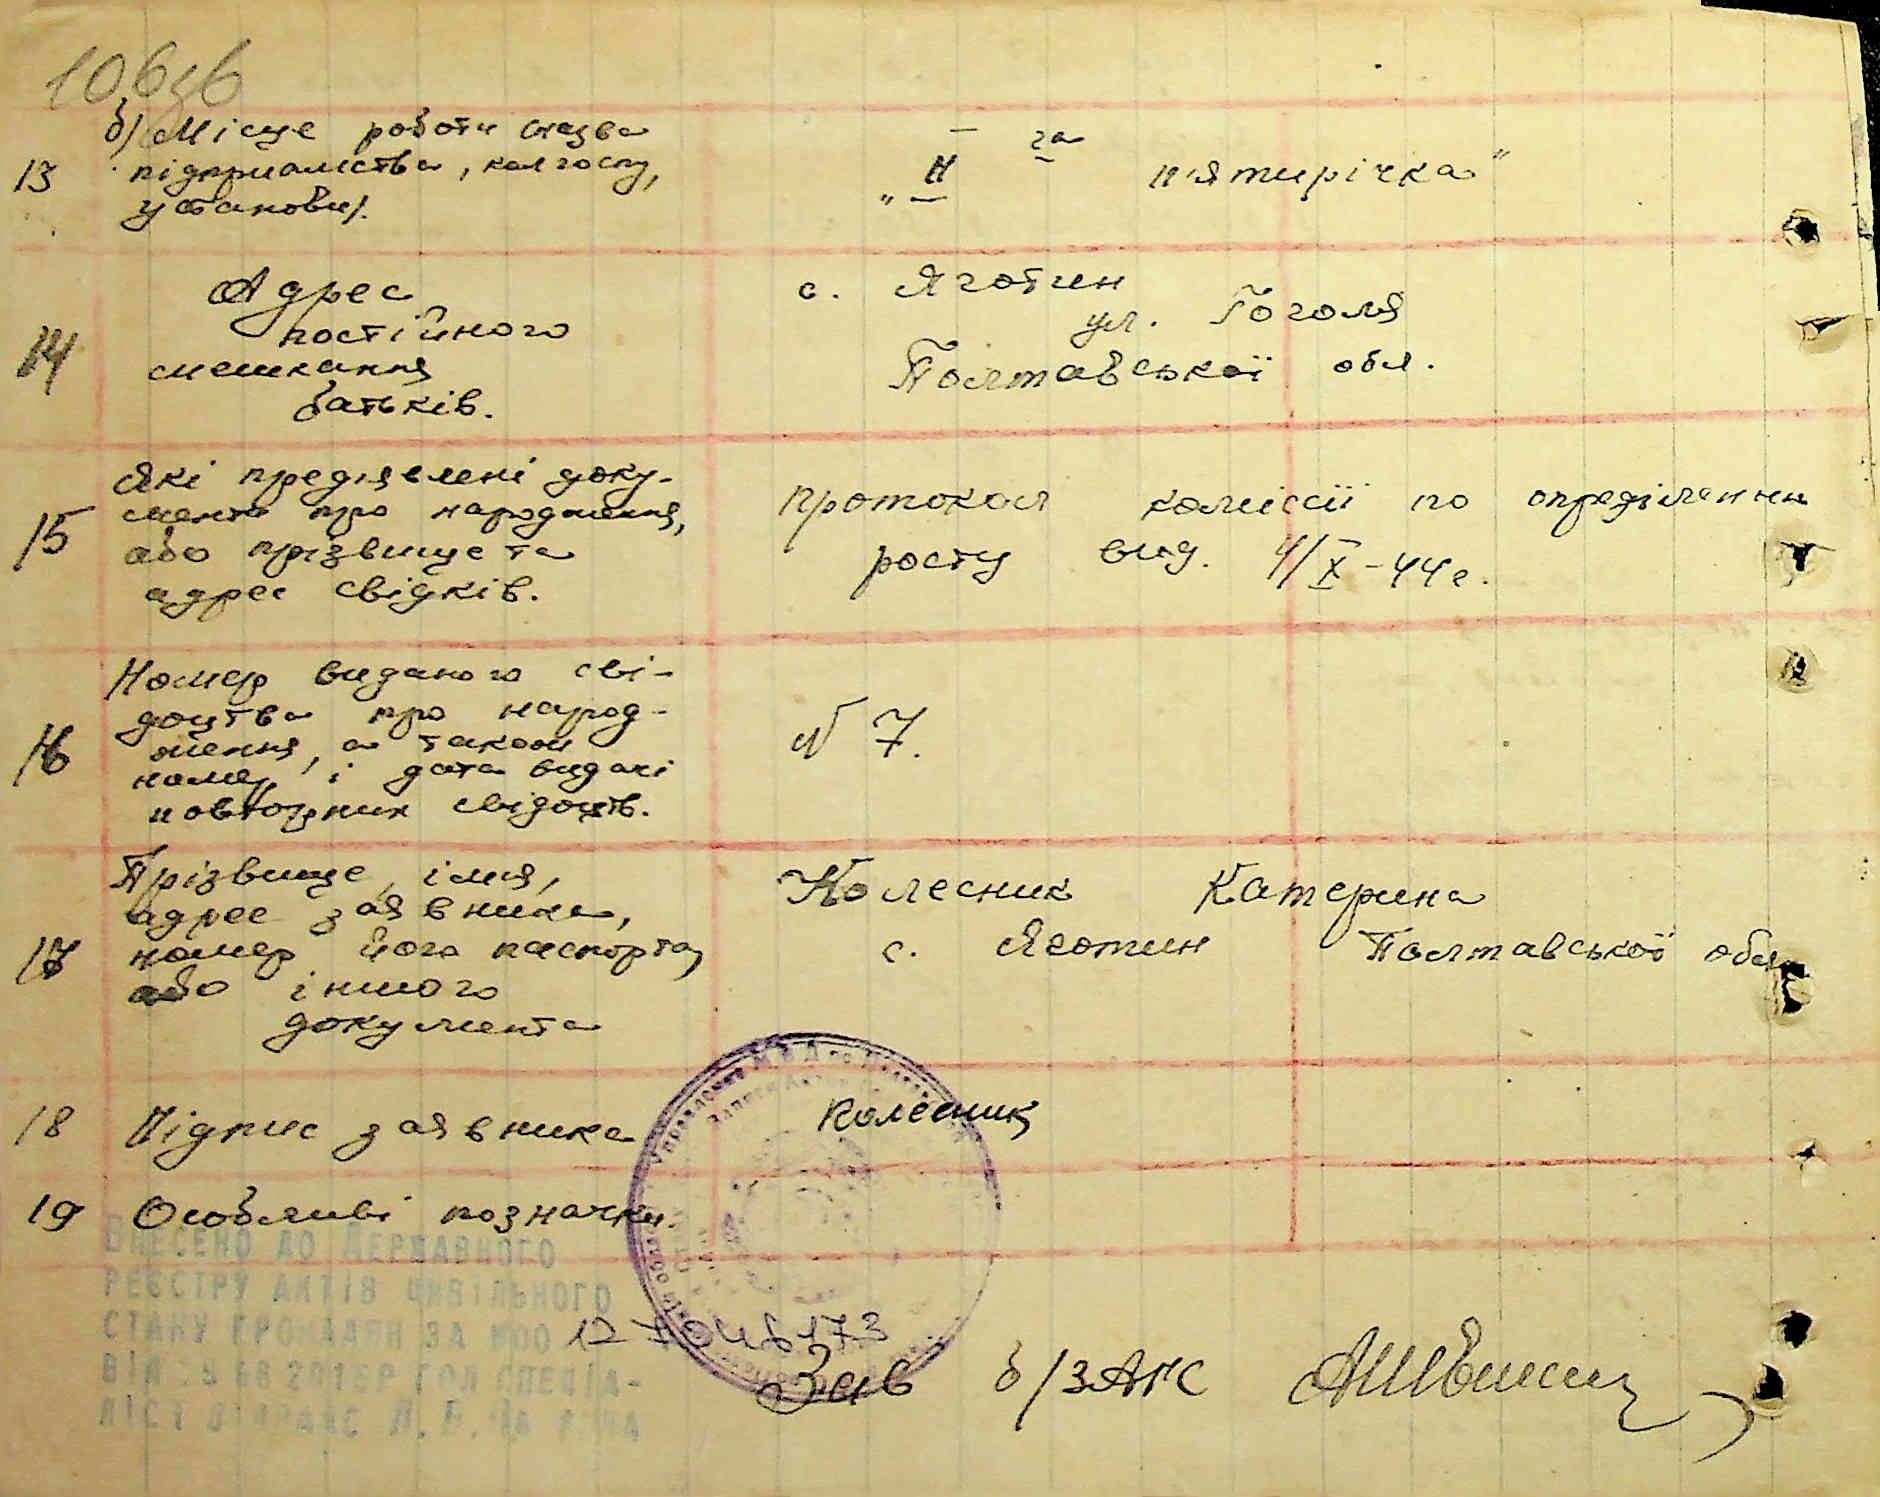 106зв
б) Місце роботи (назва
13 підприємства, колгоспу, "II га п'ятирічка"
установи).
14 Адрес
постійного
мешкання
батьків.
с. Яготин
ул. Гоголя
Полтавської обл.
15 Які предявлені доку-
менти про народження,
або прізвище та
адрес свідків.
протокол коміссії по опреділенню
росту вид. 4/X-44 г.
16 Номер виданого сві-
доцтва про народ-
ження, а також
номер і дата видачі
повторних свідоцтв.
N 7.
17 Прізвище, імя,
адрес заявника,
номер його паспорта,
або іншого
документа
Колесник Катерина
с. Яготин Полтавської обл.
18 Підпис заявника Колесник
19 Особливі позначки.
ВНЕСЕНО ДО ДЕРЖАВНОГО
РЕЄСТРУ АКТІВ ЦИВІЛЬНОГО
СТАНУ ГРОМАДЯН ЗА
Зав б/ЗАГС